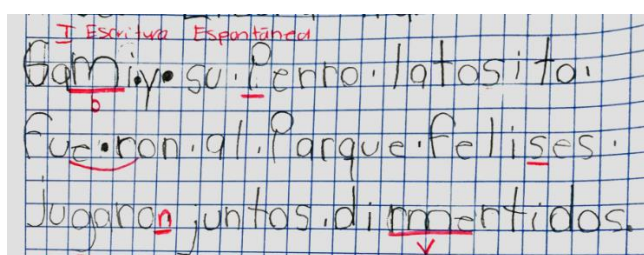 I Escritura Espontánea
Gami.y.su.Perro.latosito.
b
Fue.ron.al.Parque.felises.
Jugaron juntos.dirmertidos.
v